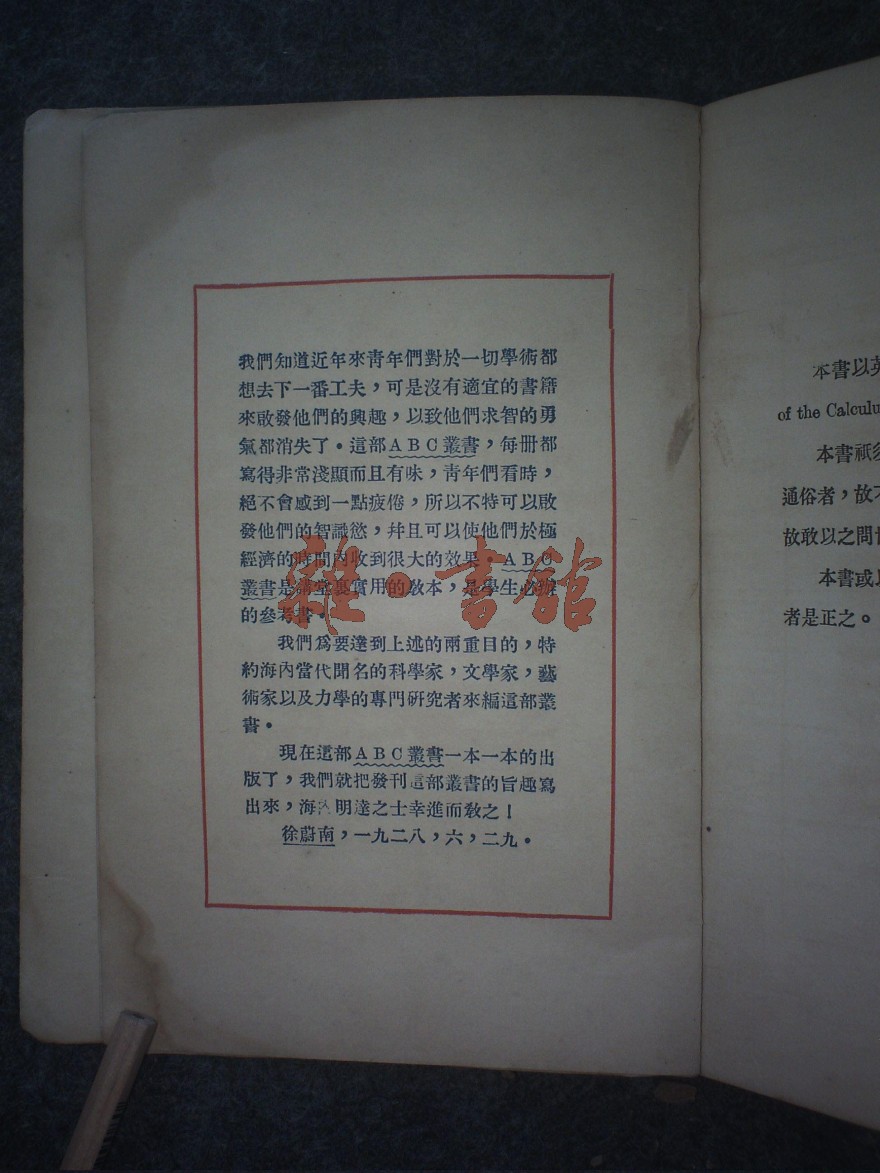 我們知道近年來靑年們對於一切學術都
想去下一番工夫，可是沒有適宜的書籍
來啟發他們的興趣，以致他們求智的勇
氣都消失了。這部ABC叢書，每冊都
寫得非常淺顯而且有味，靑年們看時，
絕不會感到一點疲倦，所以不特可以啟
發他們的智識慾，幷且可以使他們於極
經濟的時間內收到很大的效果。ABC
叢書是講堂裏實用的敎本，是學生必辦
的參考書。
我們爲要達到上述的兩重目的，特
約海內當代聞名的科學家，文學家，藝
術家以及力學的專門硏究者來編這部叢
書。
現在這部ABC叢書一本一本的出
版了，我們就把發刊這部叢書的旨趣寫
出來，海內明達之士幸進而敎之！
徐蔚南，一九二八，六，二九。
雜·書館
本書以英
of the Calculu
本書祇須
通俗者，故不
故敢以之問世
本書或
者是正之。